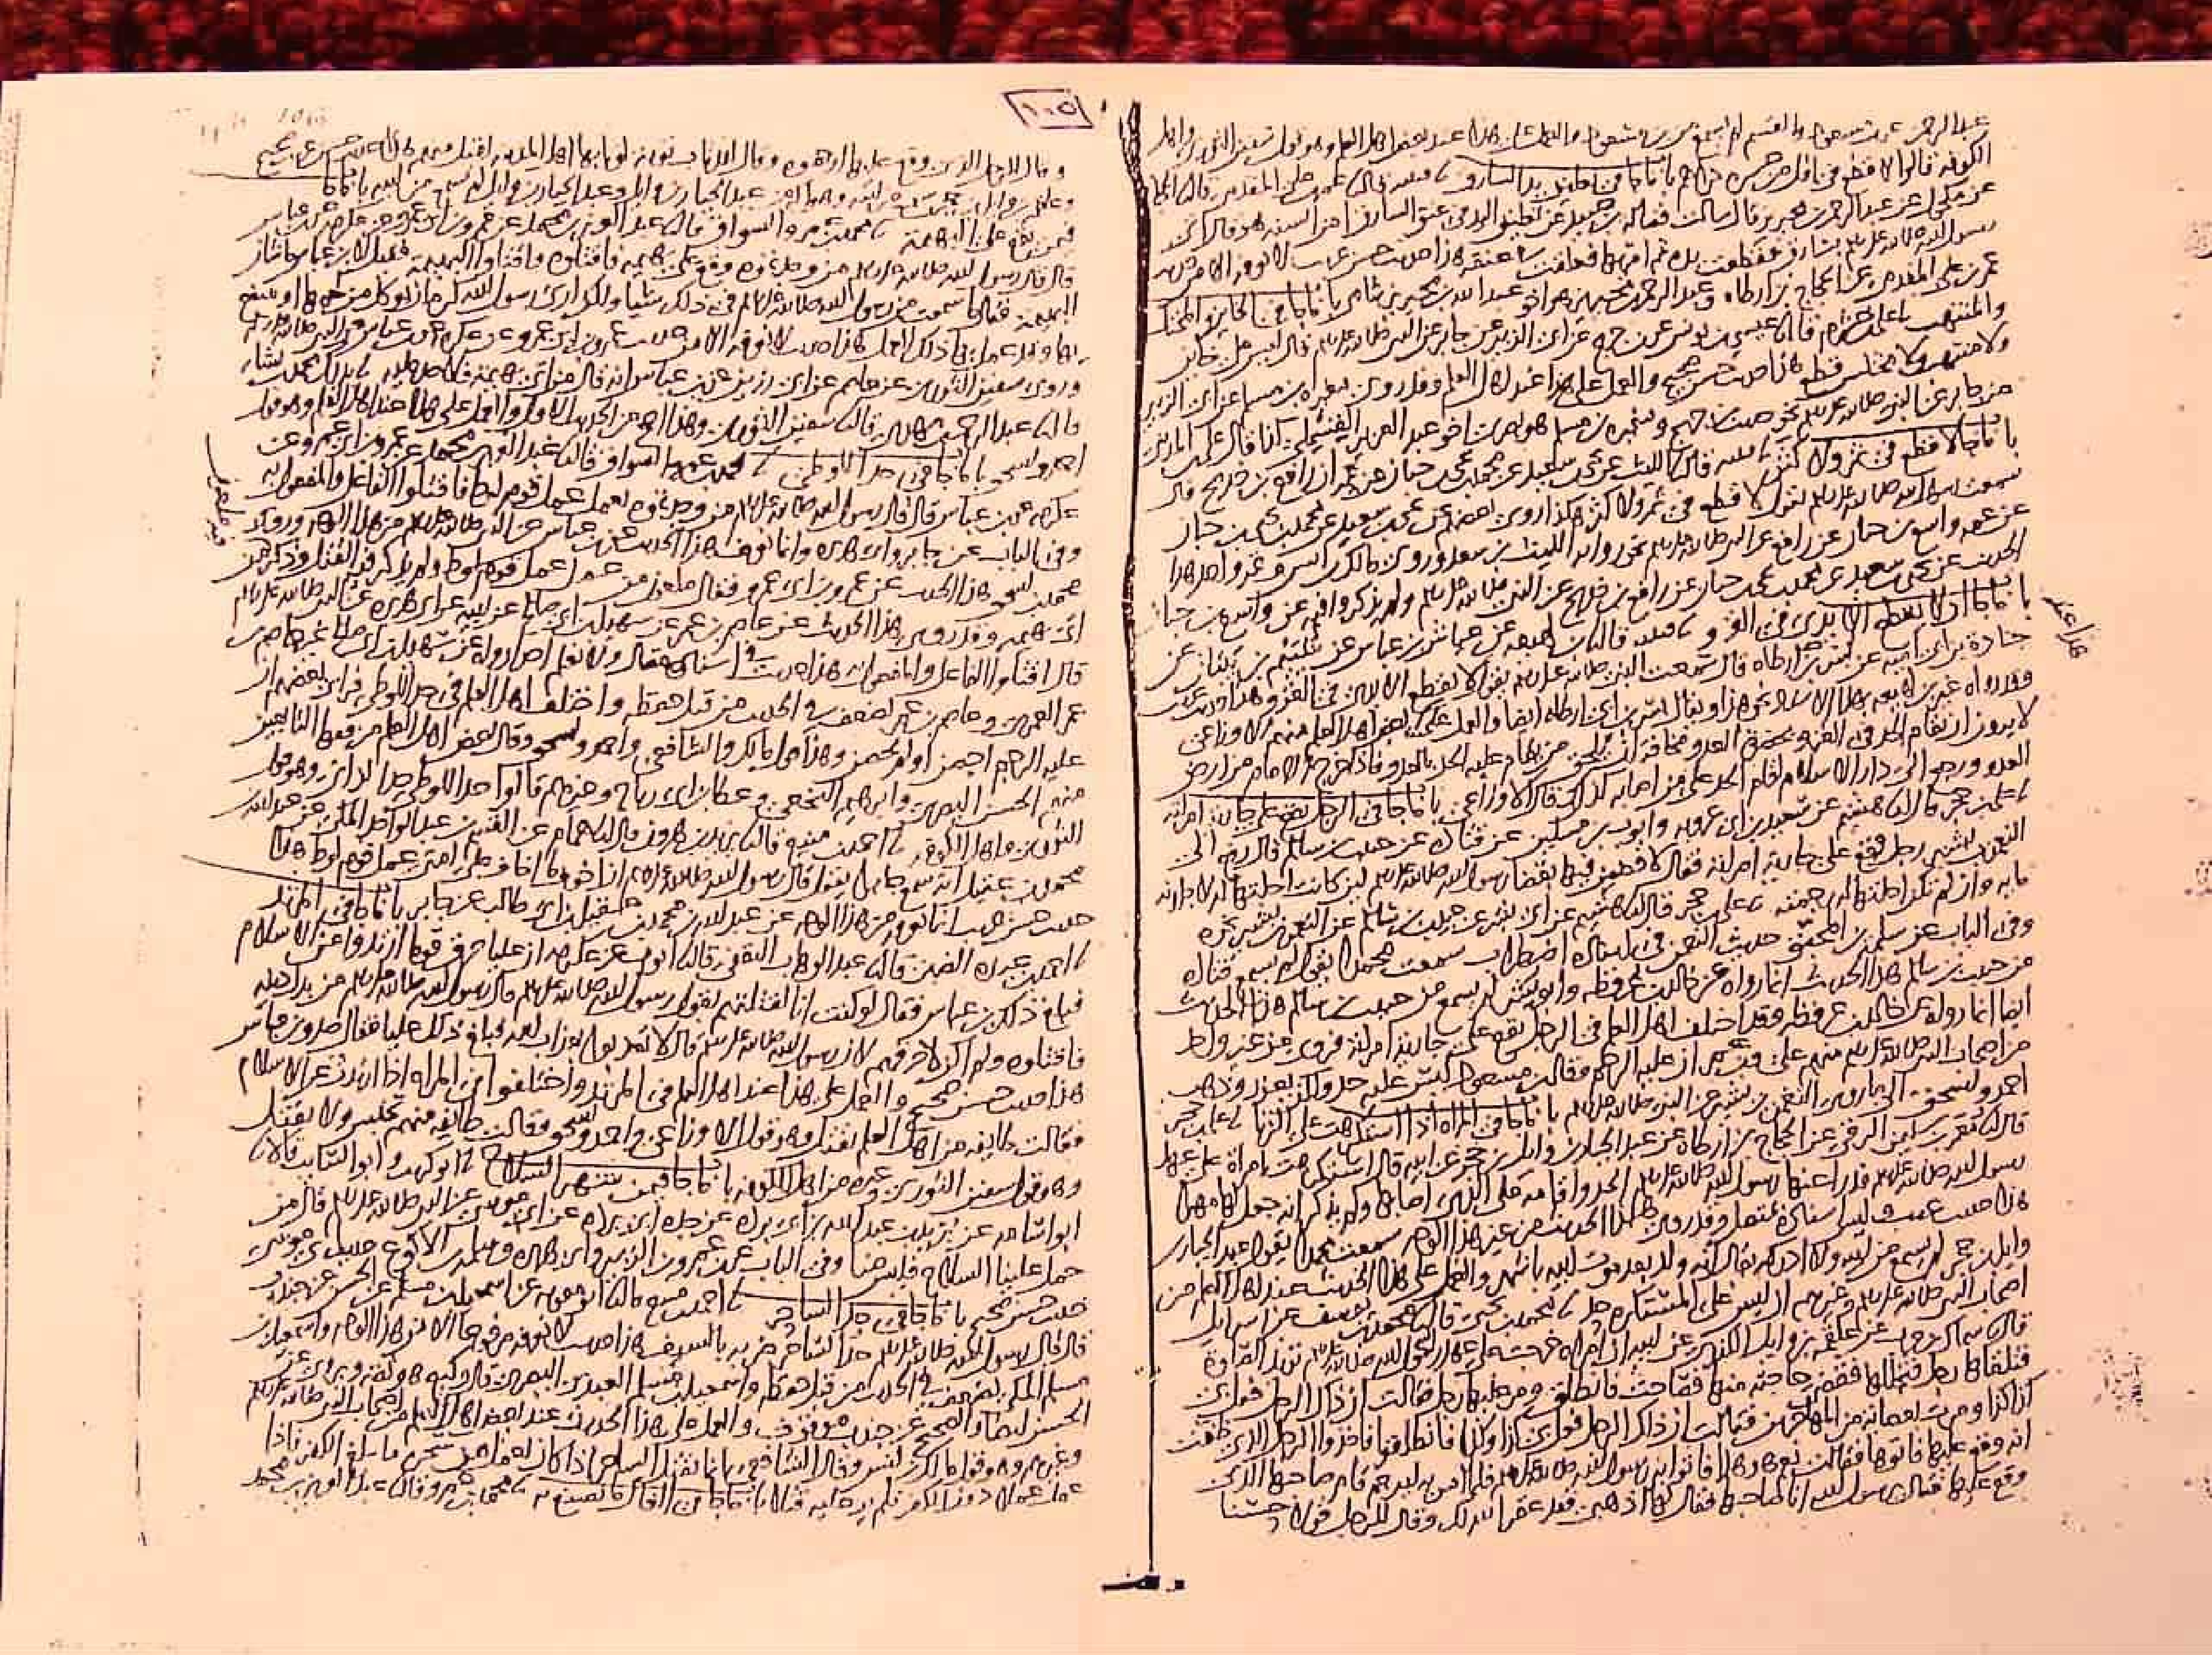 عبد الرحمن بن مسعود والقسم لم يسمع من بن مسعود والعمل على هذا عند بعض اهل العلم وهو قول سفين الثوري واهل
الكوفة قالوا لا قطع في اقل من عشرة دراهم باب ما جا في تعليق يد السارق
عن مكحول عن عبد الرحمن بن محيريز قال سالت فضالة بن عبيد عن تعليق اليد في عنق السارق امن السنة هو فقال اتي
رسول الله صلى الله عليه وسلم بسارق فقطعت يده ثم امر بها فعلقت في عنقه هذا حديث حسن غريب لا نعرفه الا من حديث
عمر بن علي المقدمي عن الحجاج بن ارطاه وعبد الرحمن بن محيريز هو اخو عبد الله بن محيريز شامي باب ما جا في الخاين والمختلس
والمنتهب علي بن خشرم قال عيسى بن يونس عن بن جريج عن ابي الزبير عن جابر عن النبي صلى الله عليه وسلم قال ليس على خاين
ولا منتهب ولا مختلس قطع هذا حديث حسن صحيح والعمل على هذا عند اهل العلم وقد روى مغيرة بن مسلم عن ابي الزبير
عن جابر عن النبي صلى الله عليه وسلم نحو حديث بن جريج ومغيرة بن مسلم هو بصري اخو عبد العزيز القسملي كذا قال علي بن المديني
باب ما جا لا قطع في ثمر ولا كثر قتيبة قال الليث عن يحيى بن سعيد عن محمد بن يحيى بن حبان عن عمه ان رافع بن خديج قال
سمعت رسول الله صلى الله عليه وسلم يقول لا قطع في ثمر ولا كثر هكذا روى بعضهم عن يحيى بن سعيد عن محمد بن يحيى بن حبان
عن عمه واسع بن حبان عن رافع عن النبي صلى الله عليه وسلم نحو رواية الليث بن سعد وروى مالك بن انس وغير واحد هذا
الحديث عن يحيى بن سعيد عن محمد بن يحيى بن حبان عن رافع بن خديج عن النبي صلى الله عليه وسلم ولم يذكروا فيه عن واسع بن حبان
باب ما جا ان لا تقطع الايدي في الغزو قتيبة قال بن لهيعة عن عياش بن عباس عن شييم بن بيتان عن
جنادة بن ابي امية عن بسر بن ارطاه قال سمعت النبي صلى الله عليه وسلم يقول لا تقطع الايدي في الغزو هذا حديث غريب
وقد رواه غير بن لهيعة بهذا الاسناد نحو هذا ويقال بسر بن ابي ارطاه ايضا والعمل على هذا عند بعض اهل العلم منهم الاوزاعي
لا يرون ان يقام الحد في الغزو بحضرة العدو مخافة ان يلحق من يقام عليه الحد بالعدو فاذا خرج الامام من ارض
العدو ورجع الى دار الاسلام اقام الحد على من اصابه كذلك قال الاوزاعي باب ما جا في الرجل يقع على جارية امراته
علي بن حجر قال هشيم عن سعيد بن ابي عروبة وايوب بن مسكين عن قتادة عن حبيب بن سالم قال رفع الى
النعمن بن بشير رجل وقع على جارية امراته فقال لاقضين فيها بقضا رسول الله صلى الله عليه وسلم لين كانت احلتها له لاجلدنه
مايه وان لم تكن احلتها له رجمته علي بن حجر قال هشيم عن ابي بشر عن حبيب بن سالم عن النعمن بن بشير نحوه
وفي الباب عن سلمة بن المحبق حديث النعمن في اسناده اضطراب سمعت محمدا يقول لم يسمع قتادة
من حبيب بن سالم هذا الحديث انما رواه عن خالد بن عرفطة وابو بشر لم يسمع من حبيب بن سالم هذا الحديث
ايضا انما رواه عن خالد بن عرفطة وقد اختلف اهل العلم في الرجل يقع على جارية امراته فروي عن غير واحد
من اصحاب النبي صلى الله عليه وسلم منهم علي وبن عمر ان عليه الرجم وقال بن مسعود ليس عليه حد ولكن يعزر وذهب
احمد واسحق الى ما روى النعمن بن بشير عن النبي صلى الله عليه وسلم باب ما جا في المراه اذا استكرهت على الزنا علي بن حجر
قال معمر بن سليمن الرقي عن الحجاج بن ارطاه عن عبد الجبار بن وايل بن حجر عن ابيه قال استكرهت امراة على عهد
رسول الله صلى الله عليه وسلم فدرا عنها رسول الله صلى الله عليه وسلم الحد واقامه على الذي اصابها ولم يذكر انه جعل لها مهرا
هذا حديث غريب وليس اسناده بمتصل وقد روي هذا الحديث من غير هذا الوجه سمعت محمدا يقول عبد الجبار
بن وايل بن حجر لم يسمع من ابيه ولا ادركه يقال انه ولد بعد موت ابيه باشهر والعمل على هذا الحديث عند اهل العلم من
اصحاب النبي صلى الله عليه وسلم وغيرهم ان ليس على المستكرهة حد محمد بن يحيى قال محمد بن يوسف عن اسرايل
قال سماك بن حرب عن علقمة بن وايل الكندي عن ابيه ان امراه خرجت على عهد رسول الله صلى الله عليه وسلم تريد الصلاة
فتلقاها رجل فتجللها فقضى حاجته منها فصاحت فانطلق ومر عليها رجل فقالت ان ذاك الرجل فعل بي
كذا وكذا ومرت بعصابة من المهاجرين فقالت ان ذاك الرجل فعل بي كذا وكذا فانطلقوا فاخذوا الرجل الذي ظنت
انه وقع عليها فاتوها فقالت نعم هو هذا فاتوا به رسول الله صلى الله عليه وسلم فلما امر به ليرجم قام صاحبها الذي
وقع عليها فقال يرسول الله انا صاحبها فقال لها اذهبي فقد غفر الله لك وقال للرجل قولا حسنا
١٠٥
وقال للرجل الذي وقع عليها ارجموه وقال لقد تاب توبة لو تابها اهل المدينة لقبل منهم هذا حديث حسن غريب صحيح
وعلقمة بن وايل بن حجر سمع من ابيه وهو اكبر من عبد الجبار بن وايل وعبد الجبار بن وايل لم يسمع من ابيه باب ما جا
فيمن يقع على البهيمة محمد بن عمرو السواق قال عبد العزيز بن محمد عن عمرو بن ابي عمرو عن عكرمة عن بن عباس
قال قال رسول الله صلى الله عليه وسلم من وجدتموه وقع على بهيمة فاقتلوه واقتلوا البهيمة فقيل لابن عباس ما شان
البهيمة فقال ما سمعت من رسول الله صلى الله عليه وسلم في ذلك شيا ولكن ارى رسول الله كره ان يوكل من لحمها او ينتفع
بها وقد عمل بها ذلك العمل هذا حديث لا نعرفه الا من حديث عمرو بن ابي عمرو عن عكرمة عن بن عباس عن النبي صلى الله عليه وسلم
وروى سفين الثوري عن عاصم عن ابي رزين عن بن عباس انه قال من اتى بهيمة فلا حد عليه بذلك محمد بن بشار
قال عبد الرحمن بن مهدي قال سفين الثوري وهذا اصح من الحديث الاول والعمل على هذا عند اهل العلم وهو قول
احمد واسحق باب ما جا في حد اللوطي محمد بن عمرو السواق قال عبد العزيز بن محمد عن عمرو بن ابي عمرو عن
عكرمة عن بن عباس قال قال رسول الله صلى الله عليه وسلم من وجدتموه يعمل عمل قوم لوط فاقتلوا الفاعل والمفعول به
وفي الباب عن جابر وابي هريرة وانما نعرف هذا الحديث عن بن عباس عن النبي صلى الله عليه وسلم من هذا الوجه وروى
محمد بن اسحق هذا الحديث عن عمرو بن ابي عمرو فقال ملعون من عمل عمل قوم لوط ولم يذكر فيه القتل وذكر فيه ملعون من
اتى بهيمة وقد روي هذا الحديث عن عاصم بن عمر عن سهيل بن ابي صالح عن ابيه عن ابي هريرة عن النبي صلى الله عليه وسلم
قال اقتلوا الفاعل والمفعول به هذا حديث في اسناده مقال ولا نعلم احدا رواه عن سهيل بن ابي صالح غير عاصم بن
عمر العمري وعاصم بن عمر يضعف في الحديث من قبل حفظه واختلف اهل العلم في حد اللوطي فراى بعضهم ان
عليه الرجم احصن او لم يحصن وهذا قول مالك والشافعي واحمد واسحق وقال بعض اهل العلم من فقها التابعين
منهم الحسن البصري وابرهيم النخعي وعطا بن ابي رباح وغيرهم قالوا حد اللوطي حد الزاني وهو قول
الثوري واهل الكوفة احمد بن منيع قال يزيد بن هرون قال همام عن القسم بن عبد الواحد المكي عن عبد الله بن
محمد بن عقيل انه سمع جابرا يقول قال رسول الله صلى الله عليه وسلم ان اخوف ما اخاف على امتي عمل قوم لوط هذا
حديث حسن غريب انما نعرفه من هذا الوجه عن عبد الله بن محمد بن عقيل بن ابي طالب عن جابر باب ما جا في المرتد
احمد بن عبدة الضبي قال عبد الوهاب الثقفي قال ايوب عن عكرمة ان عليا حرق قوما ارتدوا عن الاسلام
فبلغ ذلك بن عباس فقال لو كنت انا لقتلتهم لقول رسول الله صلى الله عليه وسلم قال رسول الله صلى الله عليه وسلم من بدل دينه
فاقتلوه ولم اكن لاحرقهم لان رسول الله صلى الله عليه وسلم قال لا تعذبوا بعذاب الله فبلغ ذلك عليا فقال صدق بن عباس
هذا حديث حسن صحيح والعمل على هذا عند اهل العلم في المرتد واختلفوا في المراه اذا ارتدت عن الاسلام
فقالت طايفه من اهل العلم تقتل وهو قول الاوزاعي واحمد واسحق وقالت طايفه منهم تحبس ولا تقتل
وهو قول سفين الثوري وغيره من اهل الكوفة باب ما جا فيمن شهر السلاح ابو كريب وابو السايب قالا
ابو اسامة عن بريد بن عبد الله بن ابي بردة عن جده ابي بردة عن ابي موسى عن النبي صلى الله عليه وسلم قال من
حمل علينا السلاح فليس منا وفي الباب عن بن عمر وبن الزبير وابي هريرة وسلمة بن الاكوع حديث ابي موسى
حديث حسن صحيح باب ما جا في حد الساحر احمد بن منيع قال ابو معوية عن اسمعيل بن مسلم عن الحسن عن جندب
قال قال رسول الله صلى الله عليه وسلم حد الساحر ضربه بالسيف هذا حديث لا نعرفه مرفوعا الا من هذا الوجه واسمعيل بن
مسلم المكي يضعف في الحديث من قبل حفظه واسمعيل بن مسلم العبدي البصري قال وكيع هو ثقة ويروى عن
الحسن ايضا والصحيح عن جندب موقوف والعمل على هذا الحديث عند بعض اهل العلم من اصحاب النبي صلى الله عليه وسلم
وغيرهم وهو قول مالك بن انس وقال الشافعي انما يقتل الساحر اذا كان يعمل من سحره ما يبلغ الكفر فاذا
عمل عملا دون الكفر فلم ير عليه قتلا باب ما جا في الغال ما يصنع به محمد بن عمرو قال عبد العزيز بن محمد